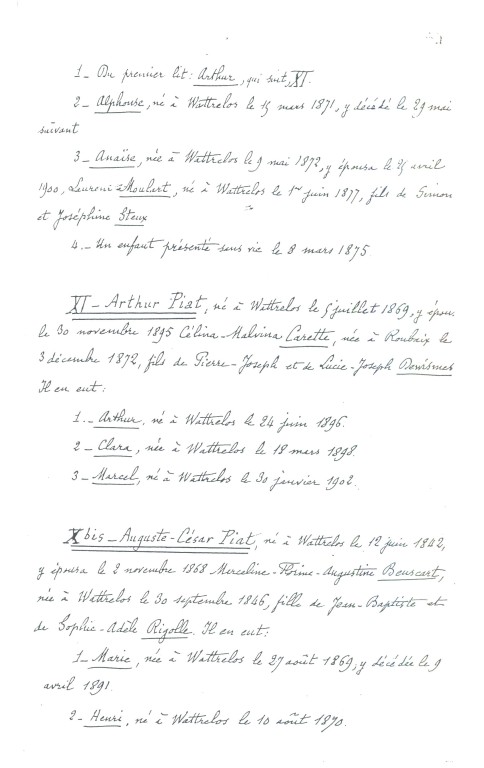 1_ Du premier lit: Arthur, qui suit, XI.
2_ Alphonse, né à Wattrelos le 15 mars 1871, y décédé le 29 mai
suivant
3_ Anaïse, née à Wattrelos le 9 mai 1872, y épousa le 25 avril
1900, Laurent Moulart, né à Wattrelos le 1er juin 1877, fils de Simon
et Joséphine Steux
4._ Un enfant présenté sans vie le 8 mars 1875
XI_ Arthur Piat, né à Wattrelos le 5 juillet 1869, y épou
le 30 novembre 1895 Célina-Malvina Carette, née à Roubaix le
3 décembre 1872, fils de Pierre-Joseph et de Lucie-Joseph
Il en eut:
1._ Arthur, né à Wattrelos le 24 juin 1896.
2_ Clara, née à Wattrelos le 18 mars 1898.
3_ Marcel, né à Wattrelos le 30 janvier 1902.
X bis_ Auguste-César Piat, né à Wattrelos le 12 juin 1842,
y épousa le 2 novembre 1868 Merceline-Florine-Augustine Beuscart,
née à Wattrelos le 30 septembre 1846, fille de Jean-Baptiste et
de Sophie-Adèle Rigolle. Il en eut:
1_ Marie, née à Wattrelos le 27 août 1869, y décédée le 9
avril 1891
2_ Henri, né à Wattrelos le 10 août 1870.